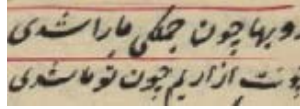 رو بها چون جملگی ما را شدی
چونت آزاریم چون تو ما شدی